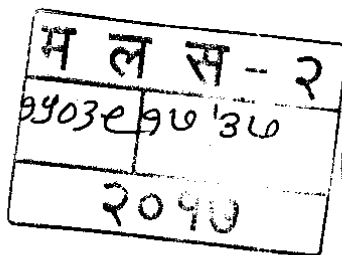 म ल स - २
१५०३९ १७ ३७
२०१७